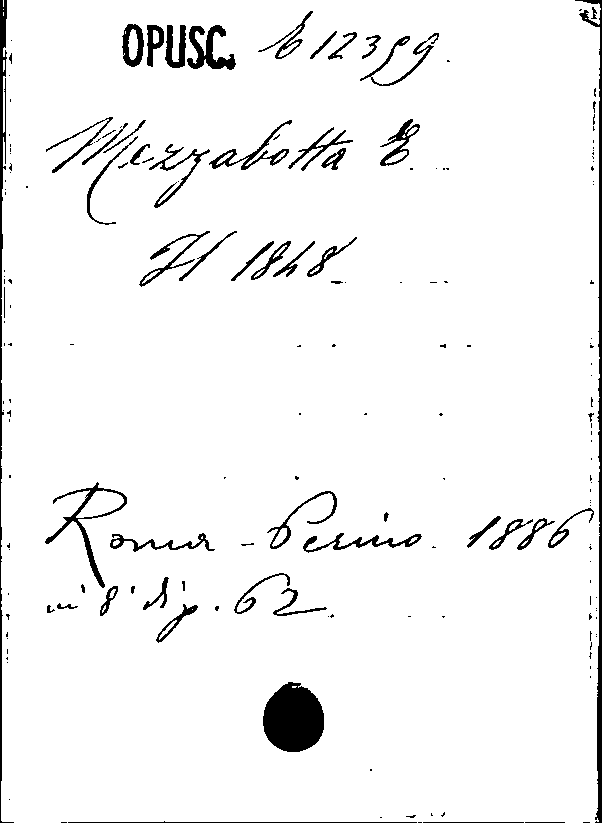 OPUSC. E 12359
Mezzabotta E.
Il 1848
Roma - Perino 1886
in 8° di p. 62.